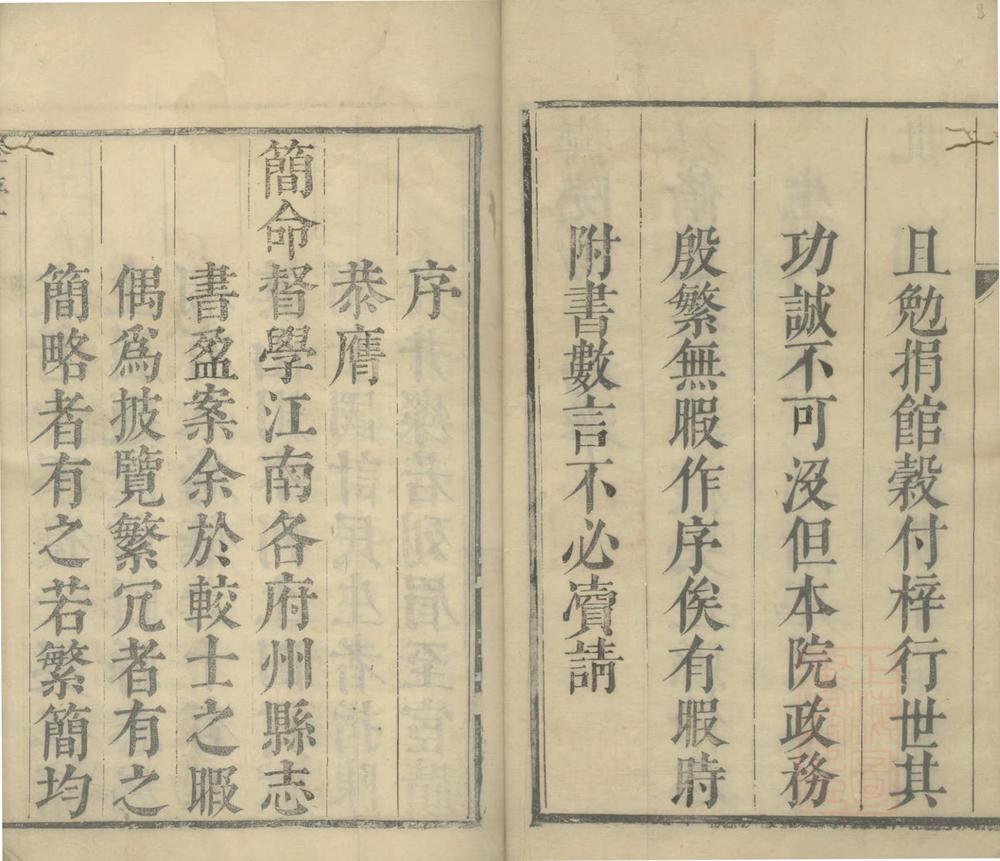 且勉捐館穀付梓行世其
功誠不可沒但本院政務
殷繁無暇作序俟有暇時
附書數言不必瀆請
序
恭膺
簡命督學江南各府州縣志
書盈案余於較士之暇
偶爲披覽繁冗者有之
簡略者有之若繁簡均